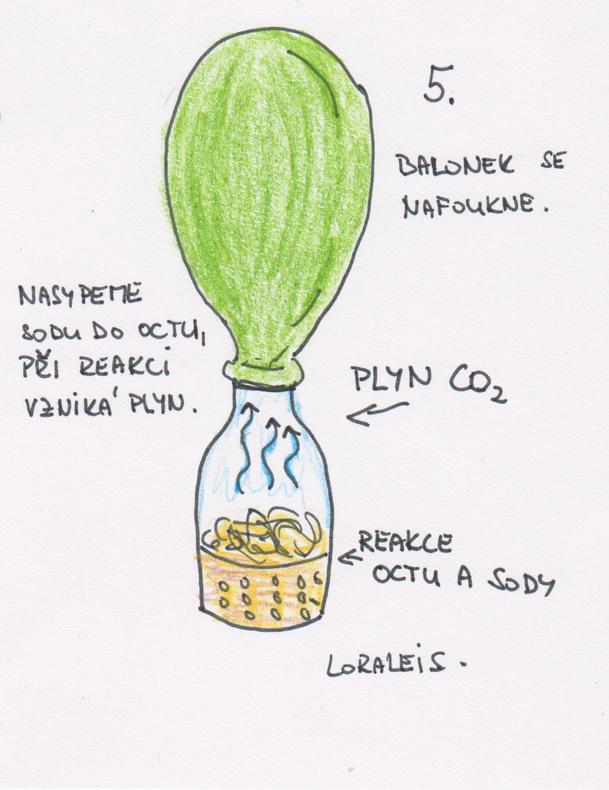 5.
BALONEK SE
NAFOUKNE.
NASYPEME
SODU DO OCTU,
PŘI REAKCI
VZNIKÁ PLYN.
PLYN CO₂
REAKCE
OCTU A SODY
LORALEIS.